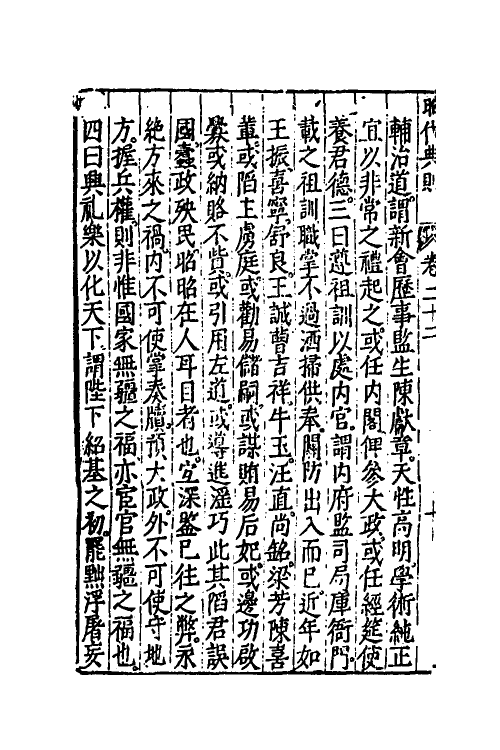 昭代典則 卷二十二
輔治道謂新會歷事監生陳獻章天性高明學術純正
宜以非常之禮起之或任内閣俾參大政或任經筵使
養君德三曰遵祖訓以處内官謂内府監司局庫衙門
載之祖訓職掌不過洒掃供奉關防出入而已近年如
王振喜寧舒良王誠曹吉祥牛玉汪直尚銘梁芳陳喜
輩或陷主虜庭或勸易儲嗣或謀賄易后妃或邊功啟
釁或納賂不貲或引用左道或導進淫巧此其陷君誤
國蠹政殃民昭昭在人耳目者也宜深鑒已往之弊永
絶方來之禍内不可使掌奏牘預大政外不可使守地
方握兵權則非惟國家無疆之福亦宦官無疆之福也
四曰興礼樂以化天下謂陛下紹基之初罷黜浮屠妄